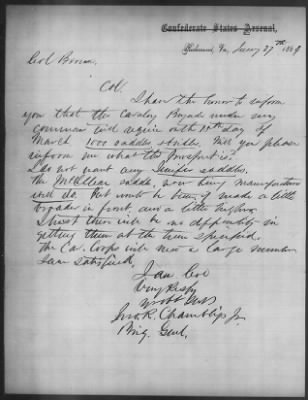 Confederate States Arsenal,
Richmond, Va., Jany 27th 1864
Col Brown.
Col.
I have the honor to inform
you that the Cavalry Brigade under my
command will require by the 10th day of
March 1000 saddles. Will you please
inform me what the prospect is.
I do not want any saddles.
The McClellan saddle, now being manufactured
will do. But would be better if made a little
broader in front, and a little higher.
I trust there will be no difficulty in
getting them at the time specified.
The Cav. Corps will need a large number
I am satisfied.
I am Col
Very Resply
Yr obt svt
Jno R. Chambliss Jr
Brig. Genl.